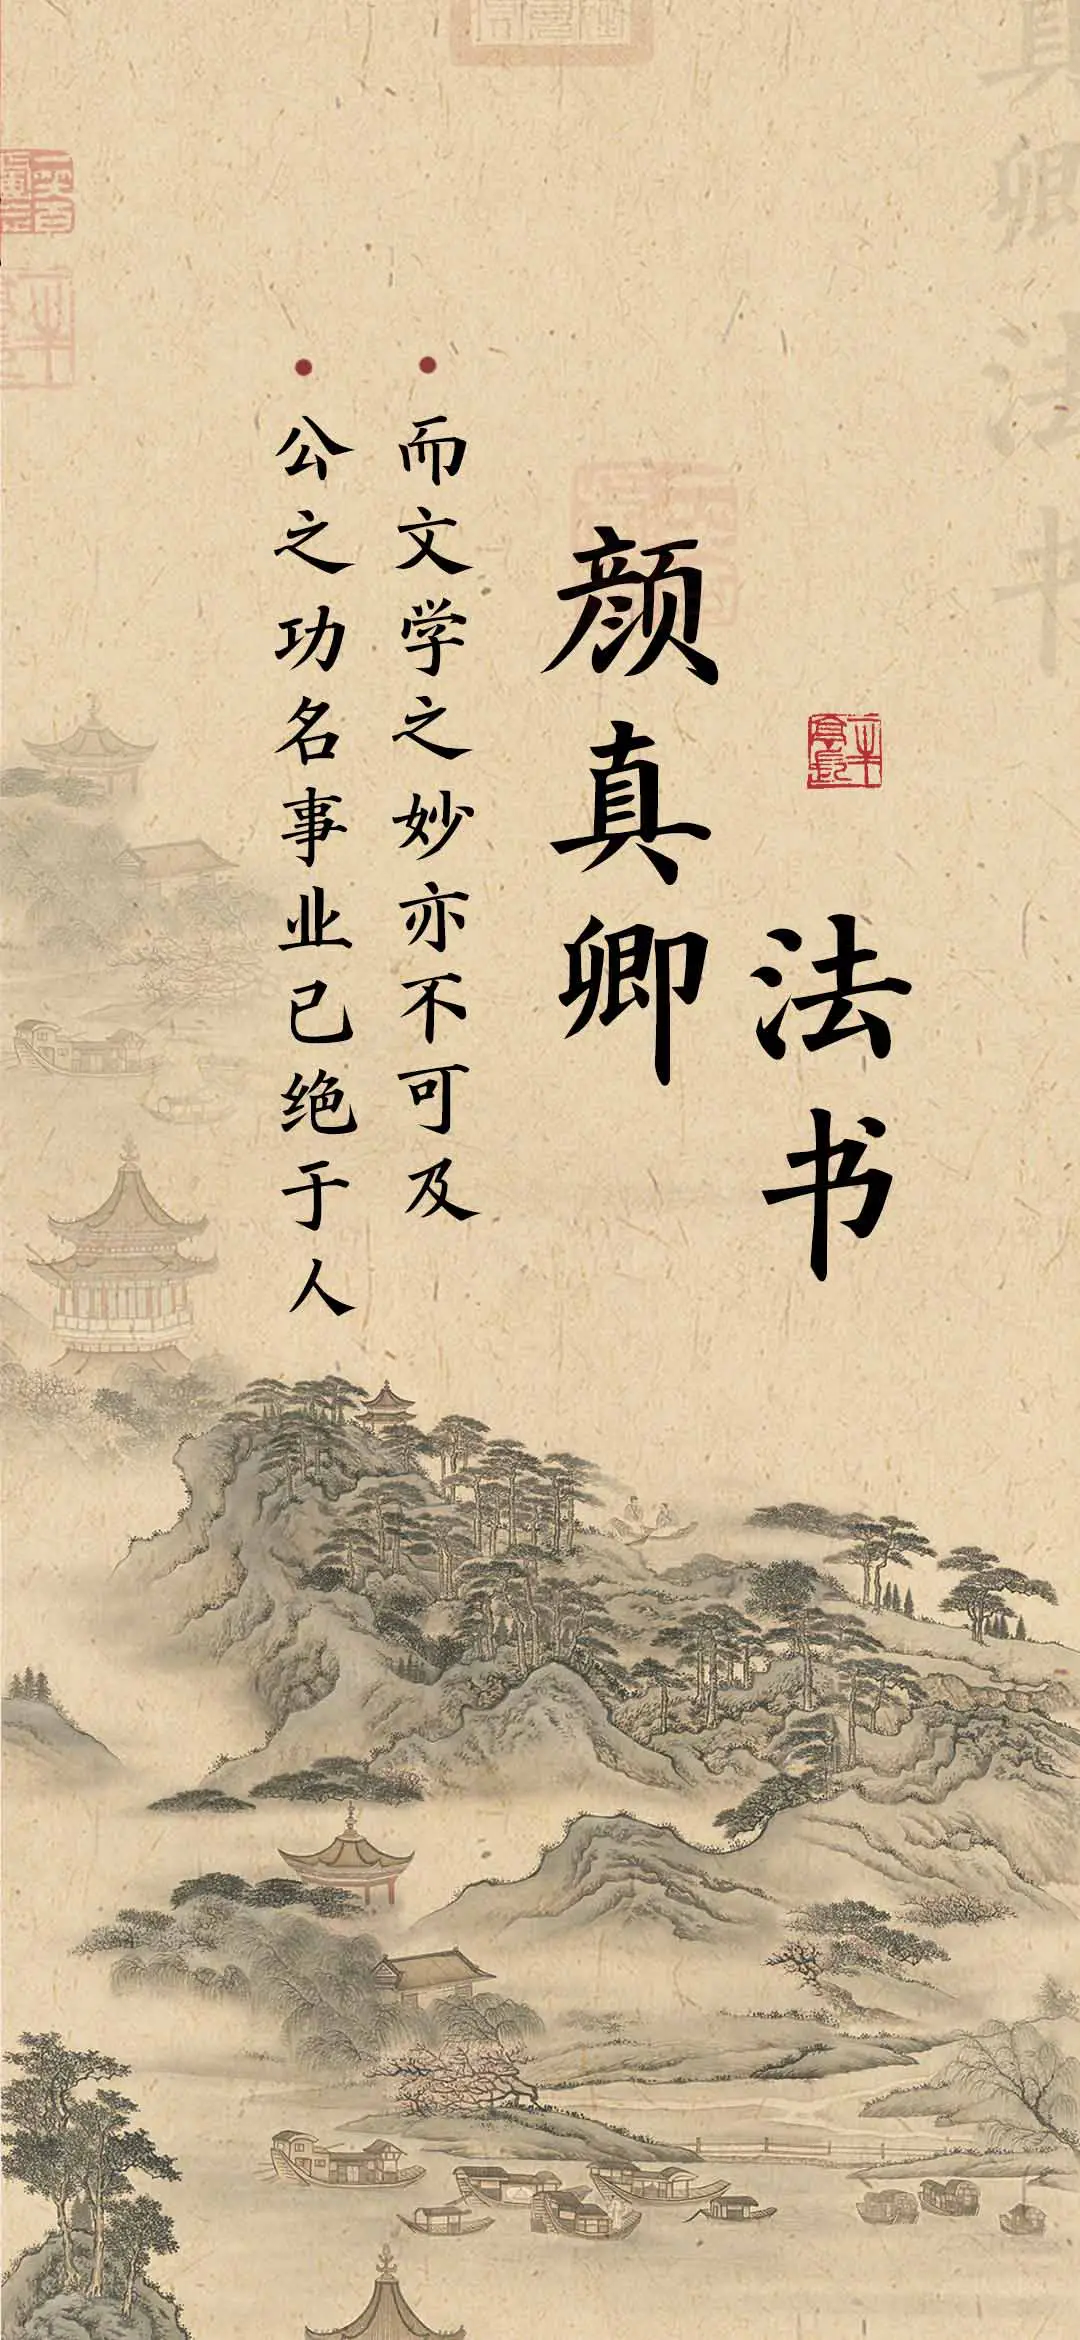 公之功名事业已绝于人
而文学之妙亦不可及
颜真卿
法书